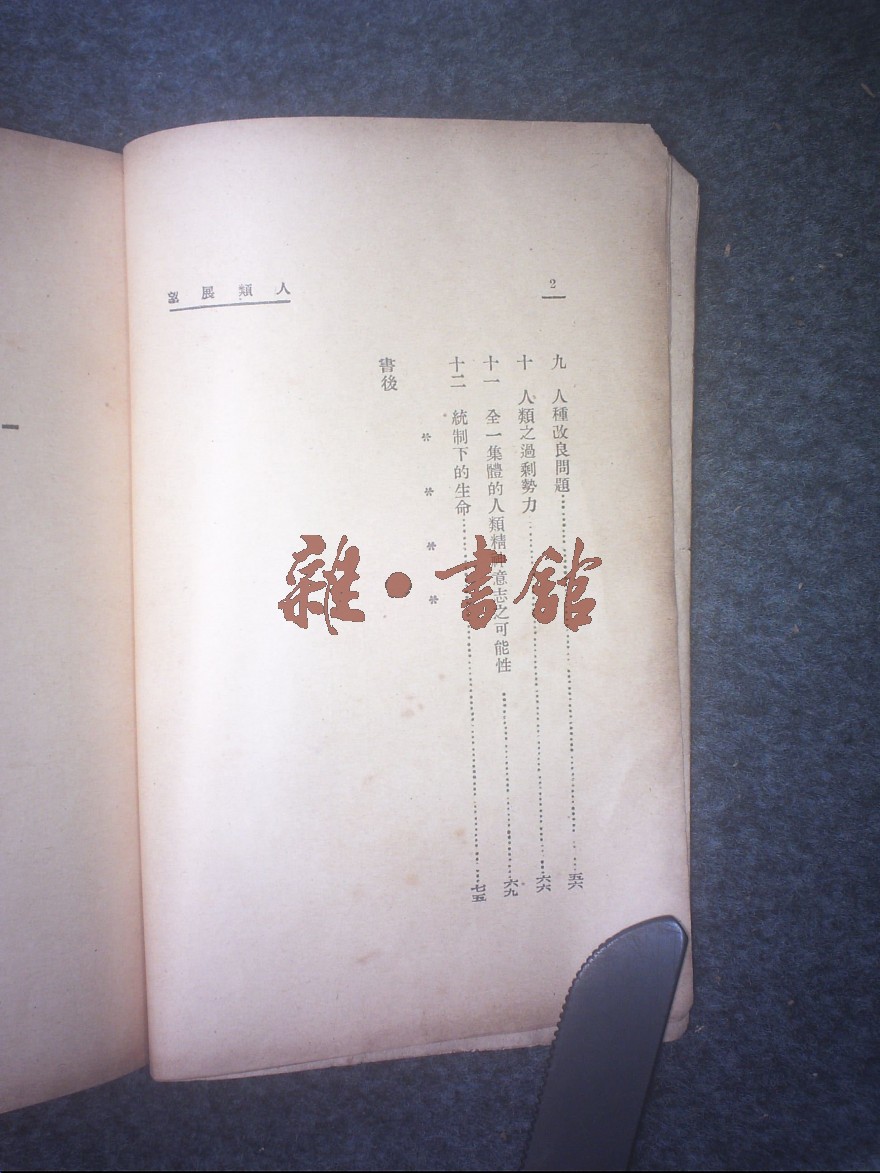 2
人類展望
九　人種改良問題……五六
十　人類之過剩勢力……六六
十一　全一集體的人類精神意志之可能性……六九
十二　統制下的生命……七五
＊　＊　＊　＊
書後
雜・書館